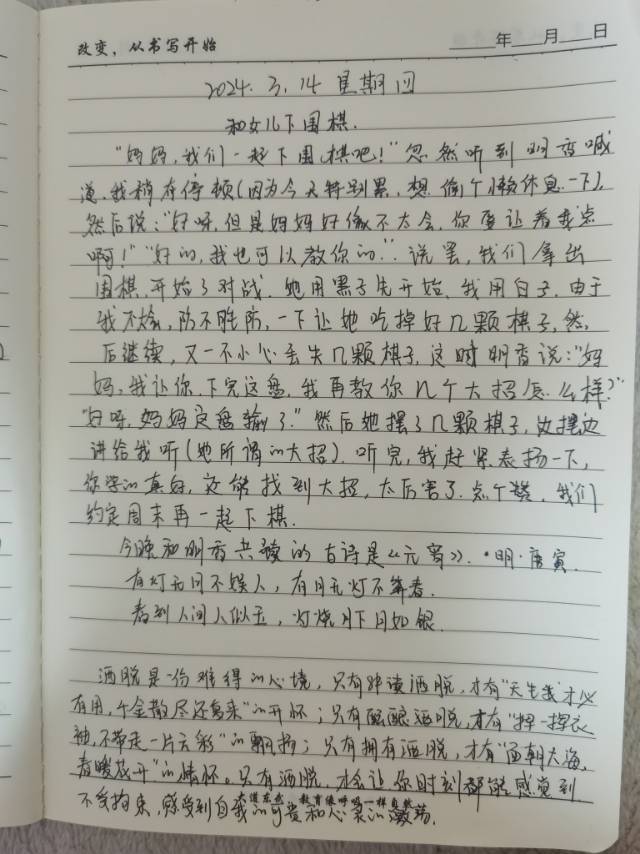 改变，从书写开始
年 月 日
2024.3.14 星期四
和女儿下围棋.
"妈妈，我们一起下围棋吧！"忽然听到明杏喊
道，我稍存停顿(因为今天特别累，想偷个小懒休息一下)，
然后说："好呀，但是妈妈好像不太会，你要让着我点
啊！""好的，我也可以教你的."说罢，我们拿出
围棋，开始了对战，她用黑子先开始，我用白子，由于
我不熟，防不胜防，一下让她吃掉好几颗棋子，然
后继续，又一不小心丢失几颗棋子，这时明杏说："妈
妈，我让你，下完这盘，我再教你几个大招怎么样？"
"好呀，妈妈这盘输了."然后她摆了几颗棋子，边摆边
讲给我听(她所谓的大招)，听完，我赶紧表扬一下，
你学的真好，还能找到大招，太厉害了，点个赞，我们
约定周末再一起下棋.
今晚和明杏共读的古诗是《元宵》.·明·唐寅.
有灯无月不娱人，有月无灯不算春.
春到人间人似玉，灯烧月下月如银.
洒脱是一份难得的心境，只有解读洒脱，才有"天生我才必
有用，千金散尽还复来"的开怀；只有酝酿洒脱，才有"挥一挥衣
袖，不带走一片云彩"的飘扬；只有拥有洒脱，才有"面朝大海，
春暖花开"的情怀。只有洒脱，才会让你时刻都能感觉到
不受拘束，感受到自我的可贵和心灵的激荡.
教育像呼吸一样自然